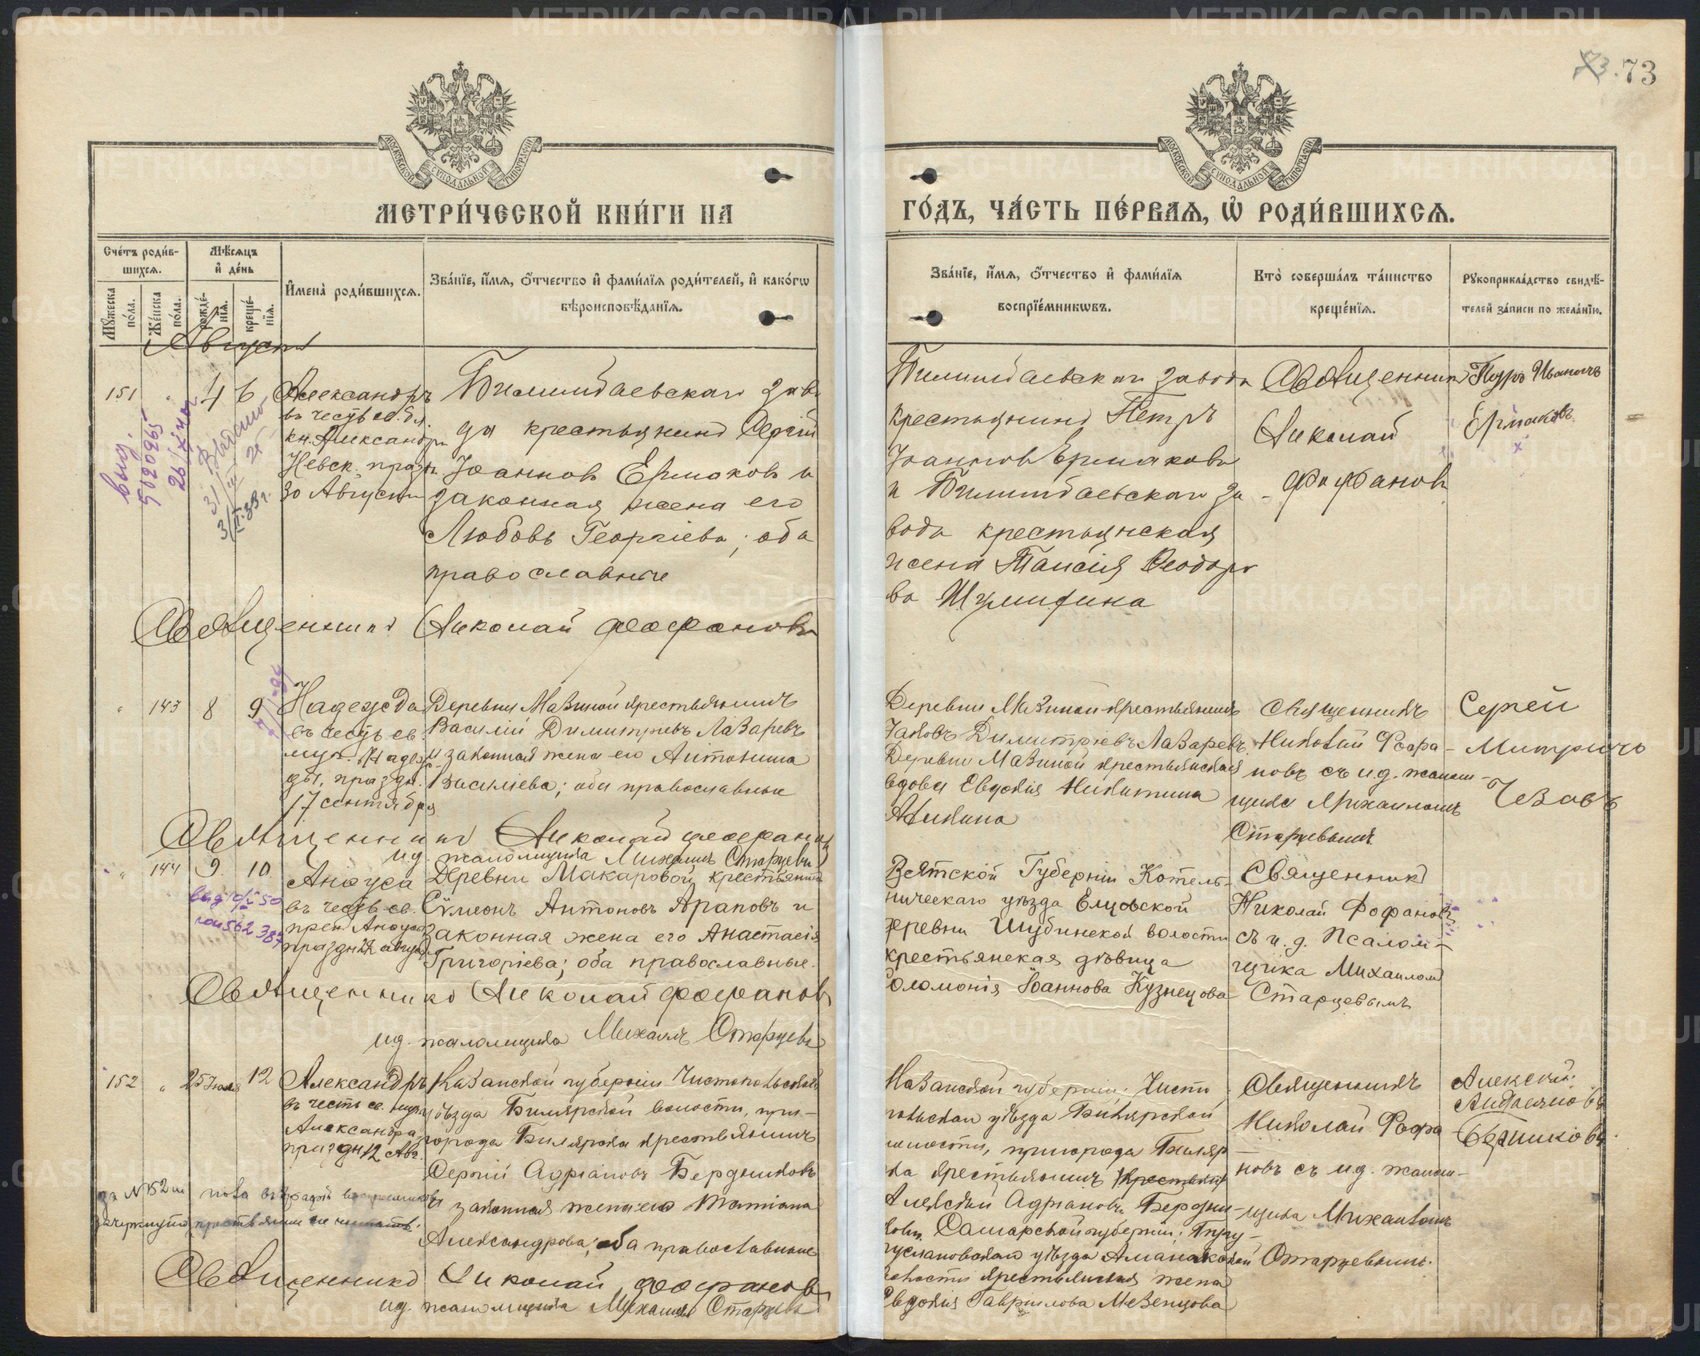 73
МЕТРИ́ЧЕСКОЙ КНИ́ГИ НА
ГО́ДЪ, ЧА́СТЬ ПЕ́РВАЯ, Ѡ РОДИ́ВШИХСЯ.
Сче́тъ роди́в-
шихся.
Мѣ́сяцъ
и҆ де́нь
Мꙋ́жеска по́ла.
Же́нска по́ла.
рожде́-
нїя.
креще́-
нїя.
И҆мена̀ роди́вшихся.
Зва́нїе, и҆́мя, ѻ҆́тчество и҆ фами́лїя роди́телей, и҆ како́гѡ
вѣроисповѣ́данїя.
Зва́нїе, и҆́мя, ѻ҆́тчество и҆ фами́лїя
воспрїе́мникѡвъ.
Кто̀ соверша́лъ та́инство
креще́нїя.
Рꙋкоприкла́дство свидѣ́-
телей за́писи по жела́нїю.
Августъ
151
4
6
Александръ
въ честь св. бл.
кн. Александра
Невск. празд.
30 Августа
Билимбаевскаго заво
да крестьянинъ Сергій
Іоанновъ Ермаковъ и
законная жена его
Любовь Георгіева; оба
православные
Билимбаевскаго завода
крестьянинъ Петръ
Іоанновъ Ермаковъ
и Билимбаевскаго за-
вода крестьянская
жена Таисія Ѳеодоро
ва Шумилина
Священникъ
Николай
Фофановъ
Петръ Иванычъ
Ермаковъ
выд.
5020965
Священникъ Николай Фофановъ
143
8
9
Надежда
въ честь св.
муч. Надеж-
ды, праздн.
17 сентября
Деревни Мазиной крестьянинъ
Василій Димитріевъ Лазаревъ
и законная жена его Антонина
Васильева; оба православные
Деревни Мазиной крестьянинъ
Іаковъ Димитріевъ Лазаревъ,
Деревни Мазиной крестьянская
вдова Евдокія Никитина
Аникина
Священникъ
Николай Фофа-
новъ съ и.д. псалом-
щика Михаиломъ
Старцевымъ
Сергей
Митричь
Чезовъ
Священникъ Николай Фофановъ
и.д. псаломщика Михаилъ Старцевъ
144
9
10
Анѳуса
въ честь св.
преп. Анѳусы
праздн. 22 август
Деревни Макаровой крестьянинъ
Сѵмеонъ Антоновъ Араповъ и
законная жена его Анастасія
Григоріева; оба православные.
Вятской Губерніи Котель-
ническаго уѣзда Елуовской
деревни Шубинской волости
крестьянская дѣвица
Соломонія Іоаннова Кузнецова
Священникъ
Николай Фофановъ
съ и.д. Псалом-
щика Михаиломъ
Старцевымъ
Священникъ Николай Фофановъ
и.д. псаломщика Михаилъ Старцевъ
152
25 Іюля
12
Александръ
въ честь св. муч.
Александра,
праздн 12 Авг.
Казанской губерніи Чистопольскаго
уѣзда Билярской волости, при-
города Билярска крестьянинъ
Сергій Адріановъ Бердниковъ
и законная жена его Татіана
Александрова; оба православные
Казанской губерніи, Чисто
польскаго уѣзда Билярской
волости, пригорода Биляр
ска крестьянинъ
Алексѣй Адріановъ Бердни-
ковъ, Самарской губерніи, Бугу-
руслановскаго уѣзда Аманакской
волости крестьянская жена
Евдокія Гаврилова Мезенцова
Священникъ
Николай Фофа
новъ съ и.д. псалом-
щика Михаиломъ
Старцевымъ.
Алексѣй
за №152 м
зачеркнутое
Священникъ Николай Фофановъ
и.д. псаломщика Михаилъ Старцевъ
METRIKI.GASO-URAL.RU